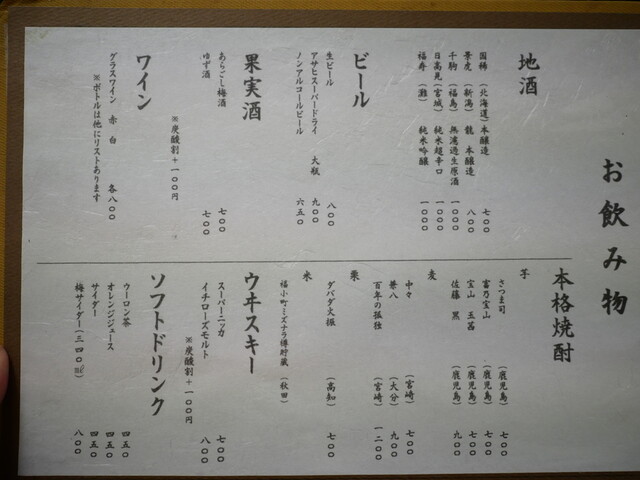 お飲み物
地酒
国稀（北海道）本醸造 七〇〇
景虎（新潟）龍 本醸造 八〇〇
千駒（福島）無濾過生原酒 一〇〇〇
日高見（宮城）純米超辛口 一〇〇〇
福寿（灘）純米吟醸 一〇〇〇
ビール
生ビール 八〇〇
アサヒスーパードライ 大瓶 九〇〇
ノンアルコールビール 六五〇
果実酒
あらごし梅酒 七〇〇
ゆず酒 七〇〇
※炭酸割＋一〇〇円
ワイン
グラスワイン 赤 白 各八〇〇
※ボトルは他にリストあります
本格焼酎
芋
さつま司（鹿児島）七〇〇
富乃宝山（鹿児島）七〇〇
宝山 玉茜（鹿児島）七〇〇
佐藤 黒（鹿児島）九〇〇
麦
中々（宮崎）七〇〇
兼八（大分）九〇〇
百年の孤独（宮崎）一二〇〇
栗
ダバダ火振（高知）七〇〇
米
福小町ミズナラ樽貯蔵（秋田）
ウヰスキー
スーパーニッカ 七〇〇
イチローズモルト 八〇〇
※炭酸割＋一〇〇円
ソフトドリンク
ウーロン茶 四五〇
オレンジジュース 四五〇
サイダー 四五〇
梅サイダー（三四〇㎖） 八〇〇